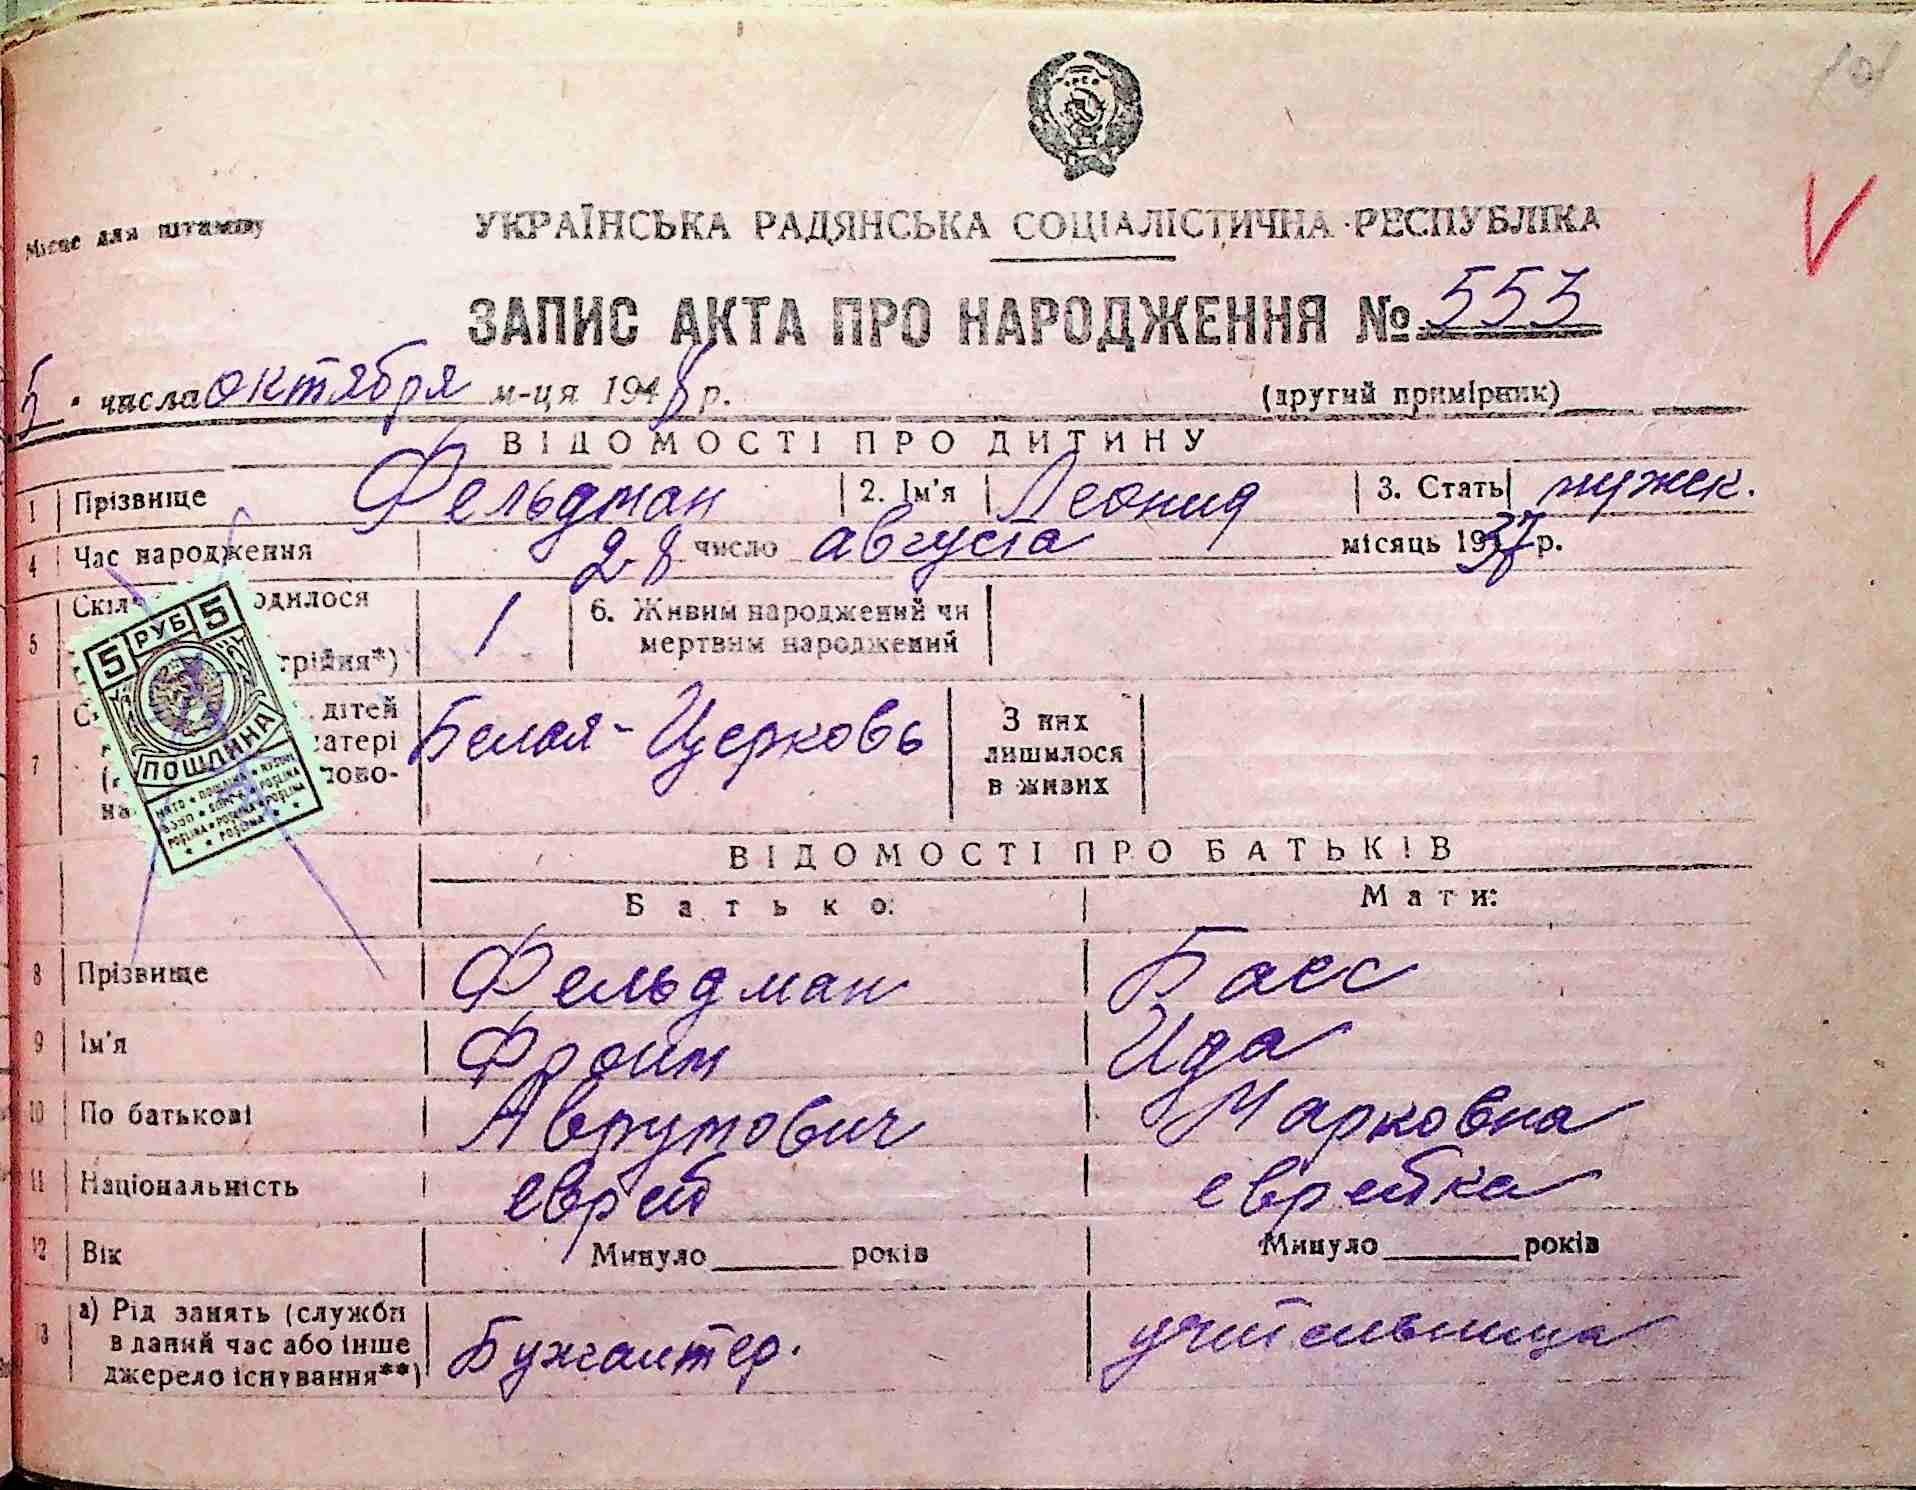 101
Місце для штампу
УКРАЇНСЬКА РАДЯНСЬКА СОЦІАЛІСТИЧНА РЕСПУБЛІКА
ЗАПИС АКТА ПРО НАРОДЖЕННЯ № 553
5 числа октября м-ця 1948 р. (другий примірник)
ВІДОМОСТІ ПРО ДИТИНУ
1 Прізвище Фельдман 2. Ім'я Леонид 3. Стать мужск.
4 Час народження 28 число августа місяць 1937 р.
5 одилося 1 6. Живим народжений чи
мертвим народжений
трійня*)
7 дітей Белая-Церковь З них
матері лишилося
ново- в живих
5 РУБ 5
ПОШЛИНА
ВІДОМОСТІ ПРО БАТЬКІВ
Батько: Мати:
8 Прізвище Фельдман Басс
9 Ім'я Фроим Ида
10 По батькові Аврумович Марковна
11 Національність еврей еврейка
12 Вік Минуло ______ років Минуло ______ років
13 а) Рід занять (служби
в даний час або інше
джерело існування**) Бухгалтер. учительница